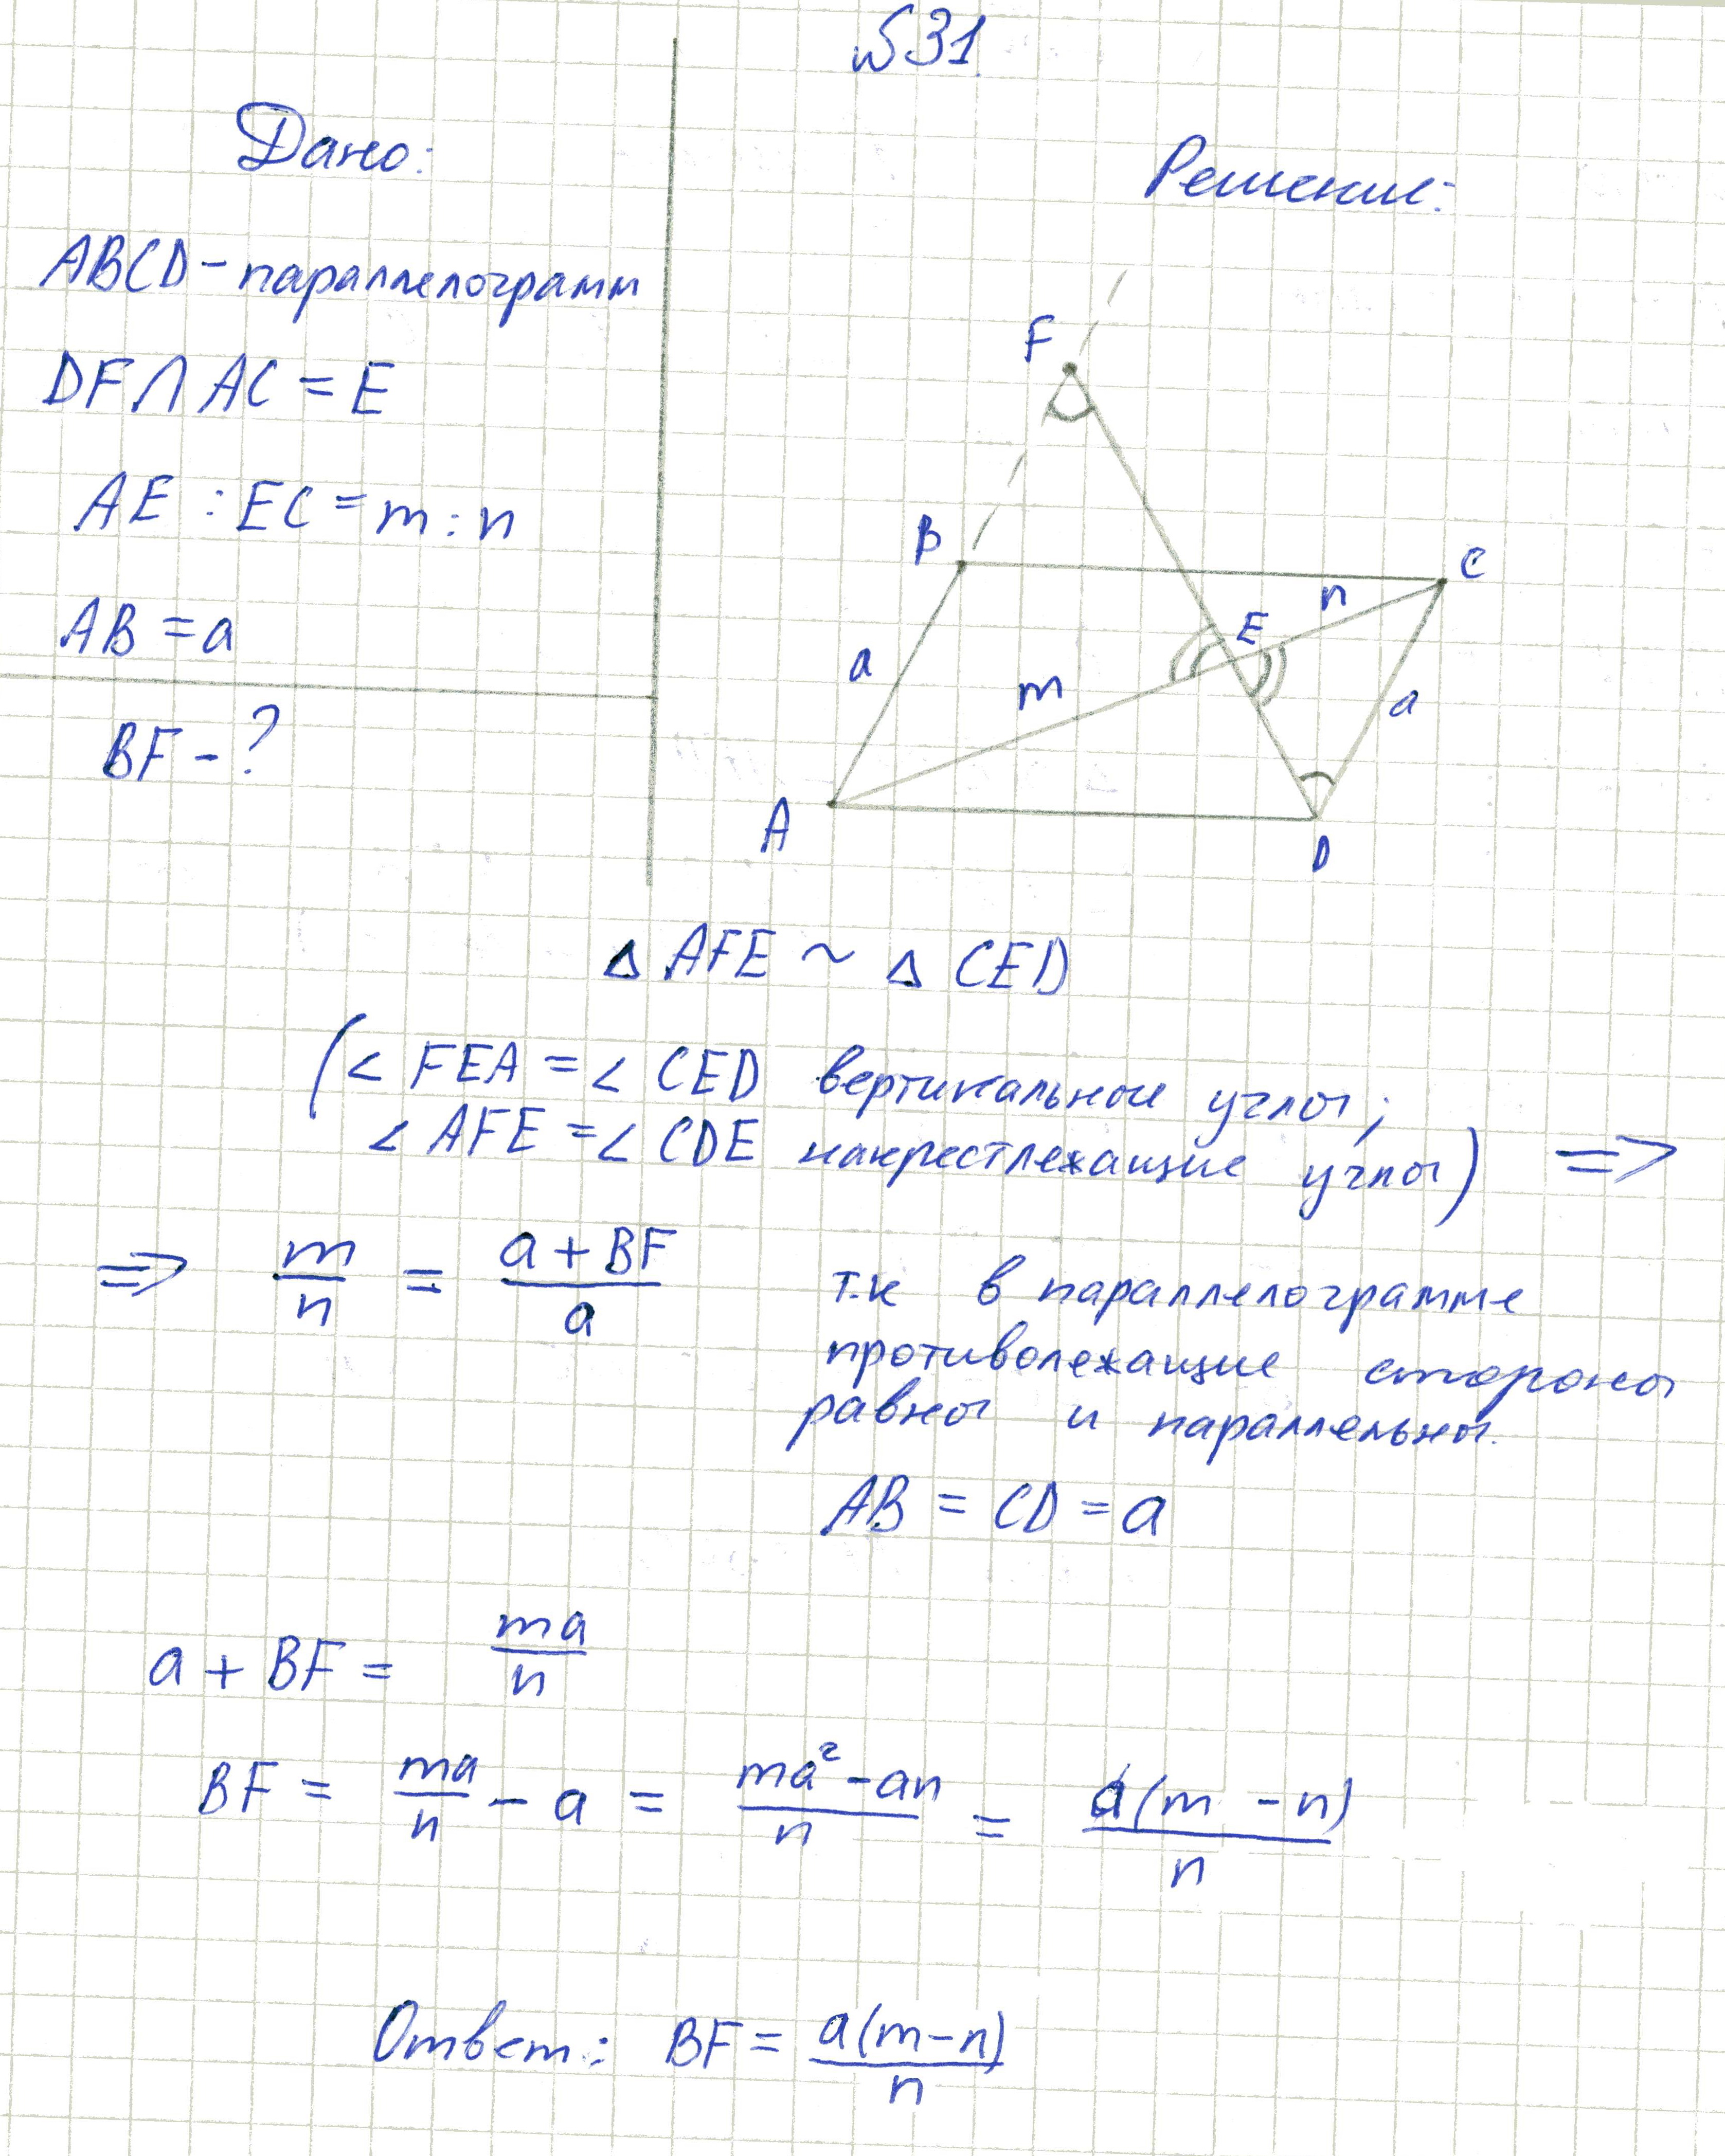 №31.
Дано:
ABCD - параллелограмм
DF ∩ AC = E
AE : EC = m : n
AB = a
BF - ?
Решение:
F
B
C
n
E
a
m
a
A
D
Δ AFE ~ Δ CED
(∠ FEA = ∠ CED вертикальные углы;
∠ AFE = ∠ CDE накрестлежащие углы) =>
=> m/n = (a + BF)/a
т.к в параллелограмме
противолежащие стороны
равны и параллельны.
AB = CD = a
a + BF = ma/n
BF = ma/n - a = (ma² - an)/n = a(m - n)/n
Ответ: BF = a(m-n)/n